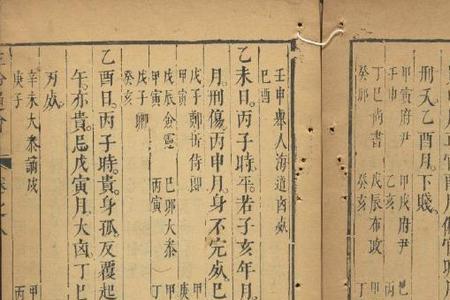 刑夭乙酉月下賤
甲寅府尹　甲戌府尹　甲
壬申　乙亥
丁巳尚書　戊辰布政　丁
癸卯　癸亥
壬申舉人海道凶死
己酉
乙未日丙子時平若子亥年月
月刑傷丙申月身不完死巳
戊子鄭侍郎　庚
甲寅　甲
戊辰僉憲　己卯大參
甲寅　丙寅
戊子卿
癸亥
乙酉日丙子時貴身孤反覆起
午亦貴忌戊寅月大凶丁巳
刃死
辛未大參
庚子
三命通會　卷之八